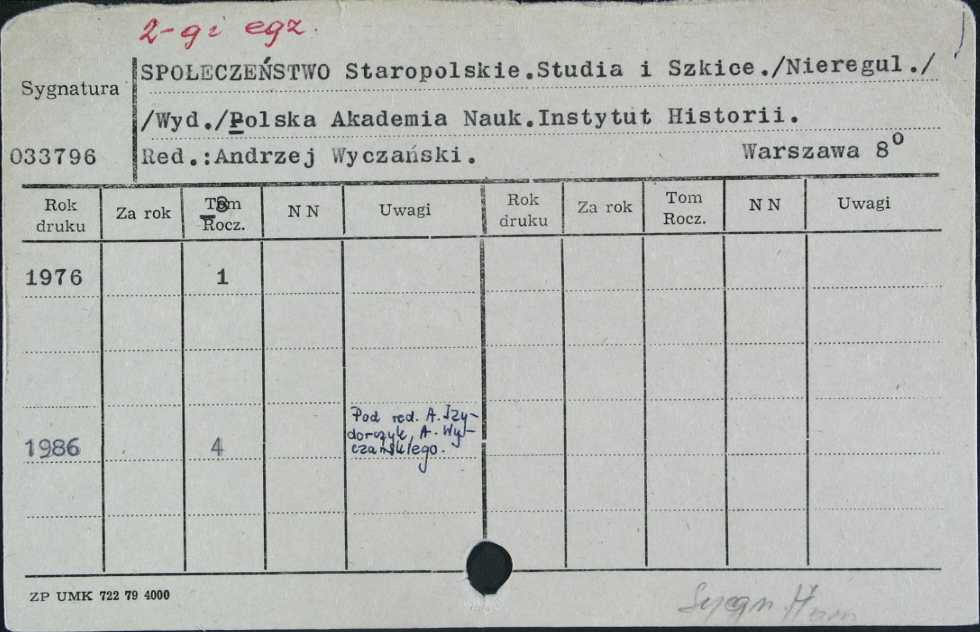 2-gi egz.
SPOLECZEŃSTWO Staropolskie.Studia i Szkice./Nieregul./
Sygnatura
/Wyd./Polska Akademia Nauk.Instytut Historii.
033796 Red.:Andrzej Wyczański. Warszawa 8º
Rok druku Za rok Tom Rocz. N N Uwagi Rok druku Za rok Tom Rocz. N N Uwagi
1976 1
Pod red. A. Izy-
dorczyk, A. Wy-
1986 4 czańskiego.
ZP UMK 722 79 4000
Sygn.